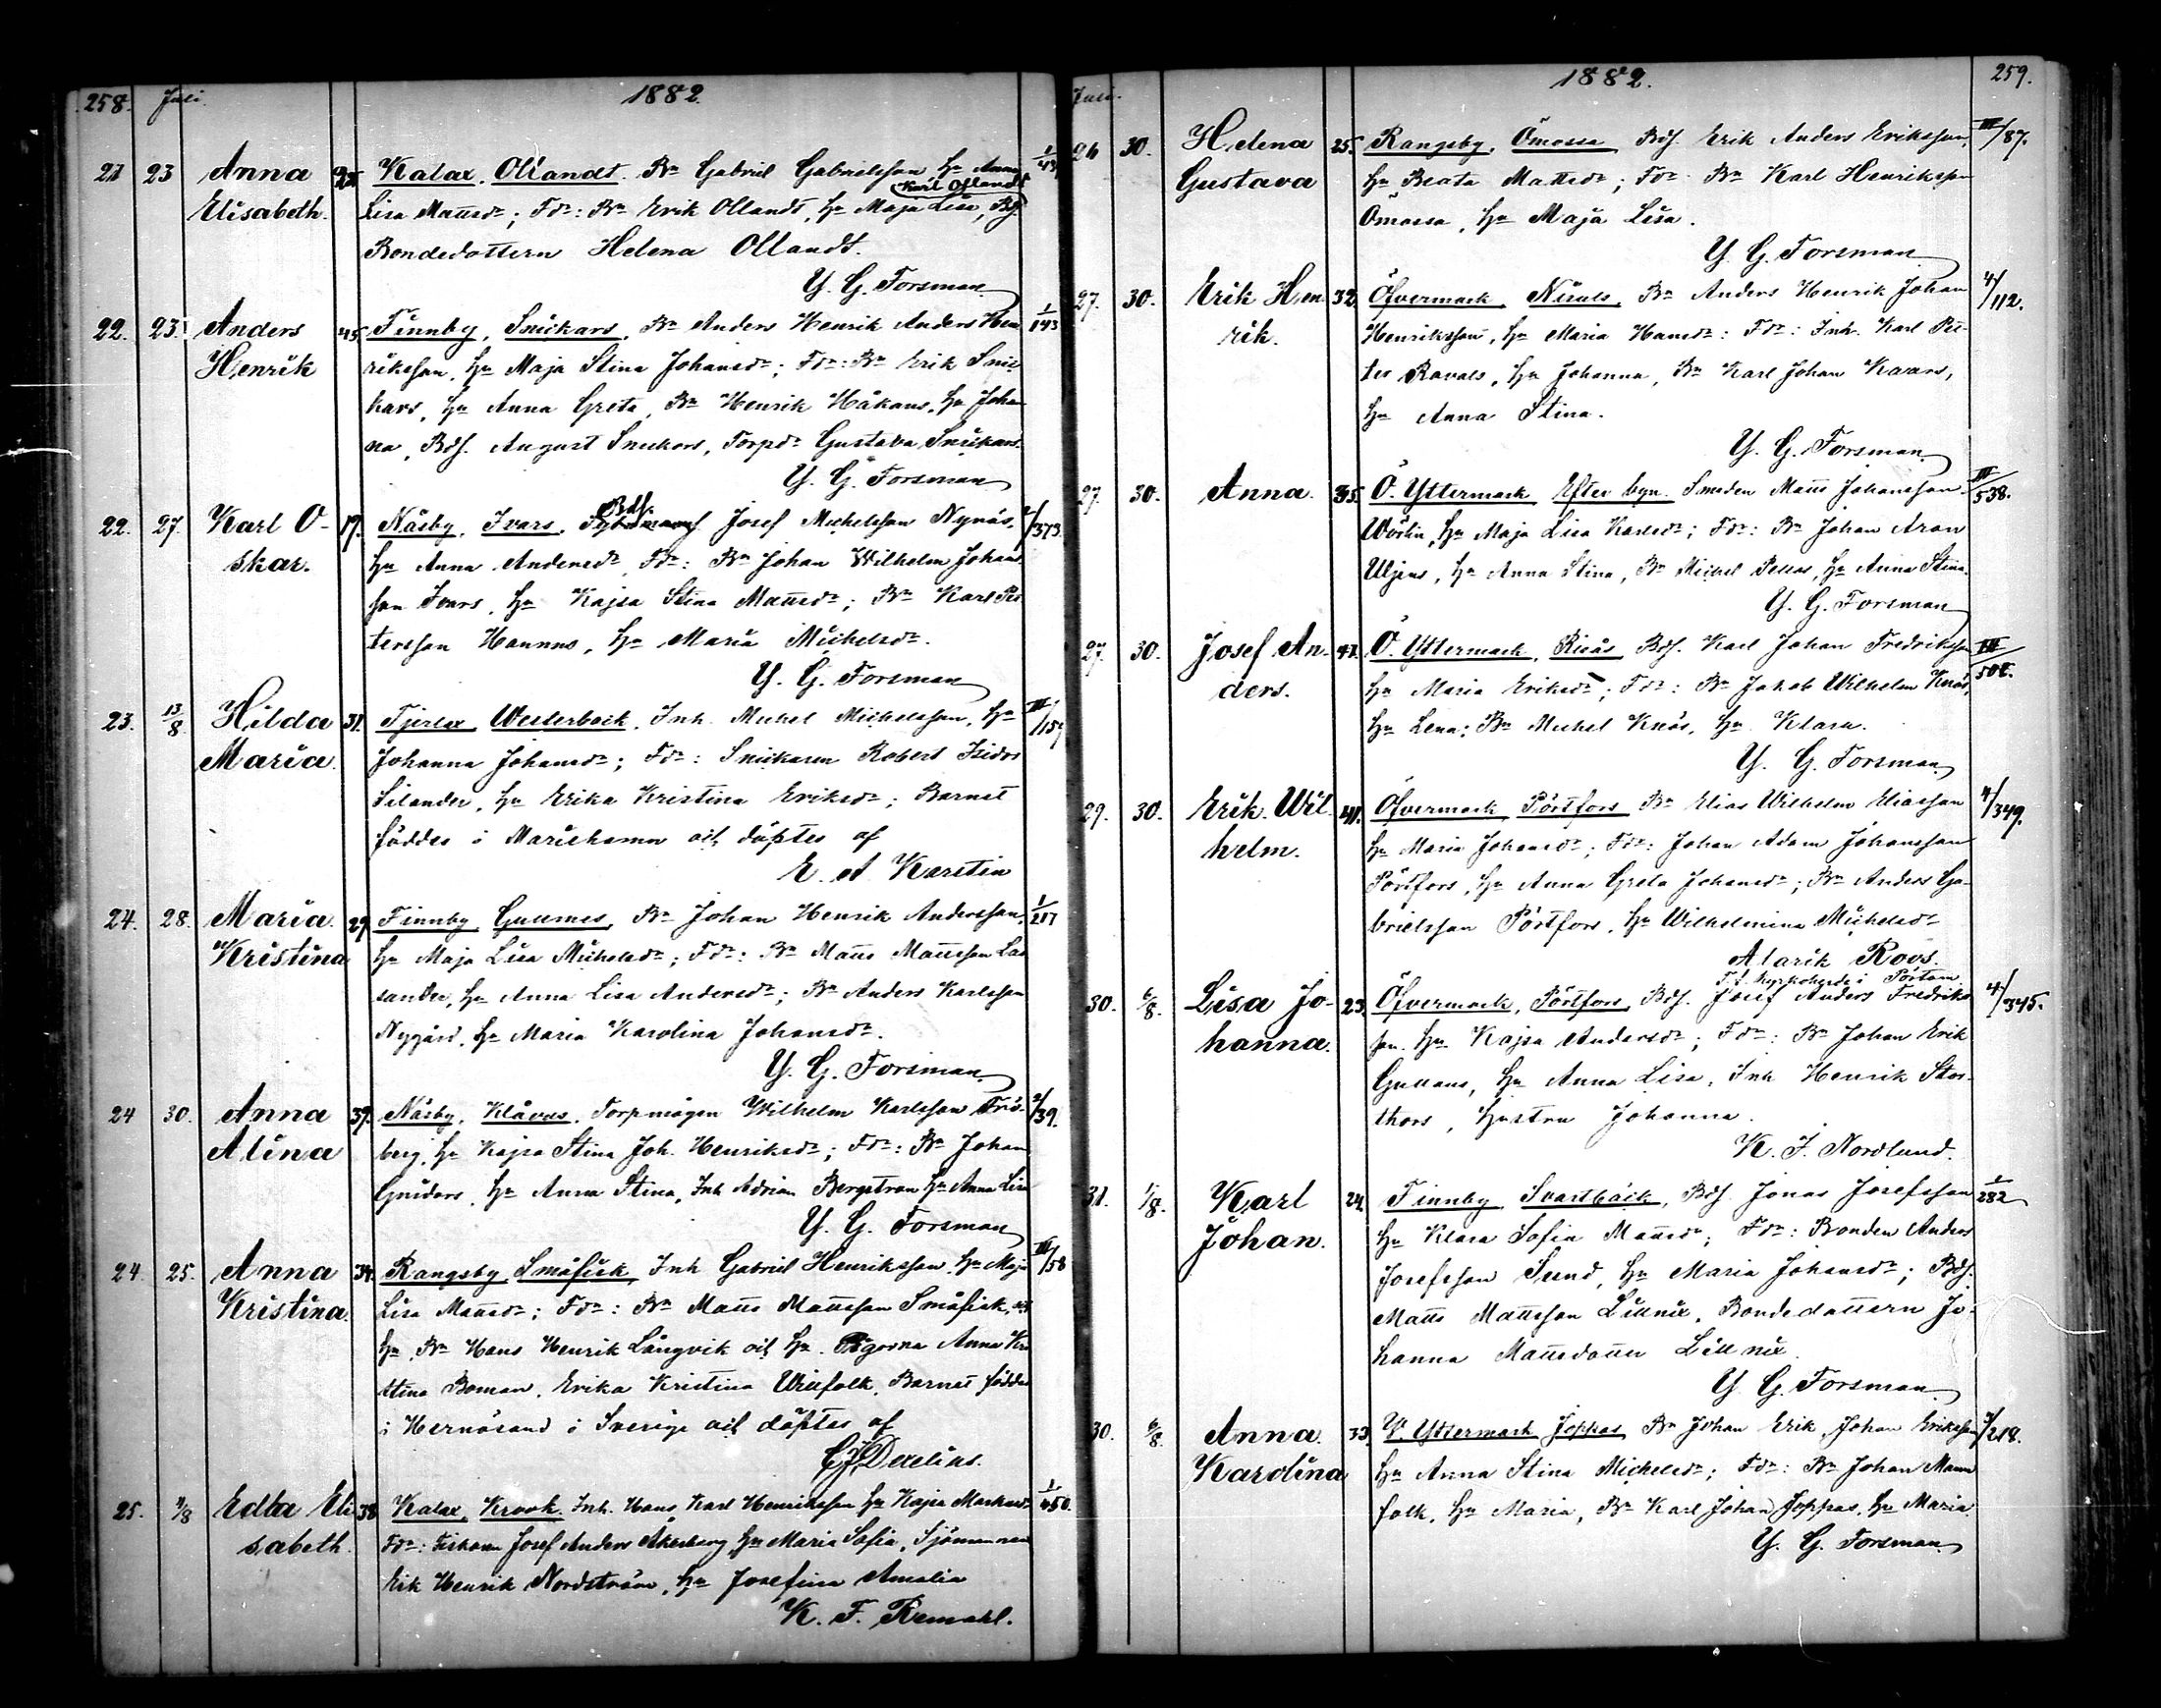 258. Juli. 1882.
21 23 Anna 25. Kalax. Ollandt. Bn Gabriel Gabrielsson Hu Anna 1/43
Karl Ollandt
Elisabeth. Lisa Mattsdr; Fdr: Bn Erik Ollandt, Hu Maja Lisa, Bdj.
Bondedottern Helena Ollandt.
Y. G. Forsman
22. 23. Anders 45. Finnby, Snickars, Bn Anders Henrik Anders Hen 1/143
Henrik riksson, Hu Maja Stina Johansdr; Fdr: Bn Erik Snic
kars, Hu Anna Greta, Bn Henrik Håkans, Hu Johan
na, Bdj. August Snickars, Torpdr Gustava Snickars.
Y. G. Forsman
Bdj.
22. 27. Karl O- 17. Näsby, Ivars, Josef Michelsson Nynäs, 2/373
skar. Hu Anna Andersdr, Fdr: Bn Johan Wilhelm Johans
son Ivars, Hu Kajsa Stina Mattsdr; Bn Karl Pet
tersson Hannus, Hu Maria Michelsdr.
Y. G. Forsman
23. 13/8 Hilda 31. Tjerlax, Westerback, Inh. Michel Michelsson, Hu III/157
Maria. Johanna Johansdr; Fdr: Snickaren Robert Isidor
Silander, Hu Erika Kristina Eriksdr; Barnet
föddes i Mariehamn och döptes af
E. A. Karstin
24. 28. Maria 29. Finnby, Gullmes, Bn Johan Henrik Andersson, 1/217
Kristina Hu Maja Lisa Michelsdr; Fdr: Bn Matts Mattsson Las
sander, Hu Anna Lisa Andersdr; Bn Anders Karlsson
Nygård, Hu Maria Karolina Johansdr.
Y. G. Forsman.
24 30. Anna 39. Näsby, Klåvus, Torpmågen Wilhelm Karlsson Fris- 2/39.
Alina berg, Hu Kajsa Stina Joh. Henriksdr; Fdr: Bn Johan
Gruders, Hu Anna Stina, Inh Adrian Bergstrom Hu Anna Lisa
Y. G. Forsman
24. 25. Anna 34. Rangsby, Småfisk, Inh Gabriel Henriksson, Hu Maja III/58
Kristina. Lisa Mattsdr; Fdr: Bn Matts Mattsson Småfisk, och
Hu, Bn Hans Henrik Långvik och Hu. Pigorna Anna Kri
stina Boman, Erika Kristina Willfolk, Barnet föddes
i Hernösand i Sverige och döptes af
25. Edla Eli 38. Kalax, Krook. Inh. Hans Karl Henriksson Hu Kajsa Markusdr 1/450.
sabeth. Fdr: Fiskaren Josef Anders Åkerberg, Hu Maria Sofia, Sjömannen
Erik Henrik Nordström, Hu Josefina Amalia
K. F. Remahl.
Juli. 1882. 259.
26 30. Helena 25. Rangsby, Ömossa Bdj. Erik Anders Eriksson, III/87.
Gustava Hu Beata Mattsdr; Fdr Bn Karl Henriksson
Ömossa, Hu Maja Lisa.
Y. G. Forsman
27. 30. Erik Hen 32. Öfvermark, Nissals, Bn Anders Henrik Johan 4/112.
rik. Henriksson, Hu Maria Hansdr: Fdr: Inh. Karl Pet-
ter Ravals, Hu Johanna, Bn Karl Johan Kaars,
Hu Anna Stina.
Y. G. Forsman.
27. 30. Anna. 35. Ö. Yttermark Efter byn. Smeden Matts Johansson III/538.
Wörlin, Hu Maja Lisa Karlsdr; Fdr: Bn Johan Aron
Uljens, Hu Anna Stina, Bn Michel Pellas, Hu Anna Stina.
Y. G. Forsman
27. 30. Josef An- 41. Ö. Yttermark, Knös Bdj. Karl Johan Fredriksson III/508.
ders. Hu Maria Eriksdr; Fdr: Bn Jakob Wilhelm Knös,
Hu Lena; Bn Michel Knös, Hu Klara.
Y. G. Forsman
29. 30. Erik Wil 41. Öfvermark Pörtfors Bn Elias Wilhelm Eliasson 4/349.
helm. Hu Maria Johansdr; Fdr: Johan Adam Johansson
Pörtfors, Hu Anna Greta Johansdr; Bn Anders Ga-
brielsson Pörtfors, Hu Wilhelmina Michelsdr
Alarik Roos.
T.f. kyrkoherde i Pörtom
30. 6/8. Lisa Jo- 23. Öfvermark, Pörtfors, Bdj. Josef Anders Fredriks 4/345.
hanna. son. Hu Kajsa Andersdr; Fdr: Bn Johan Erik
Gullans, Hu Anna Lisa, Inh Henrik Stor-
thors, Hustru Johanna.
K. J. Nordlund.
31. 1/8. Karl 24. Finnby Svartbäck, Bdj. Jonas Josefsson 1/282
Johan. Hu Klara Sofia Mattsdr; Fdr: Bonden Anders
Josefsson Sund, Hu Maria Johansdr; Bdj.
Matts Mattsson Lillnix, Bondedottern Jo-
hanna Mattsdotter Lillnix
Y G. Forsman
30. 6/8. Anna 33. Y. Yttermark Joppas Bn Johan Erik Johan Eriksson 3/218.
Karolina Hu Anna Stina Michelsdr; Fdr: Bn Johan Mann
folk, Hu Maria, Bn Karl Johan Joppas, Hu Maria.
Y. G. Forsman